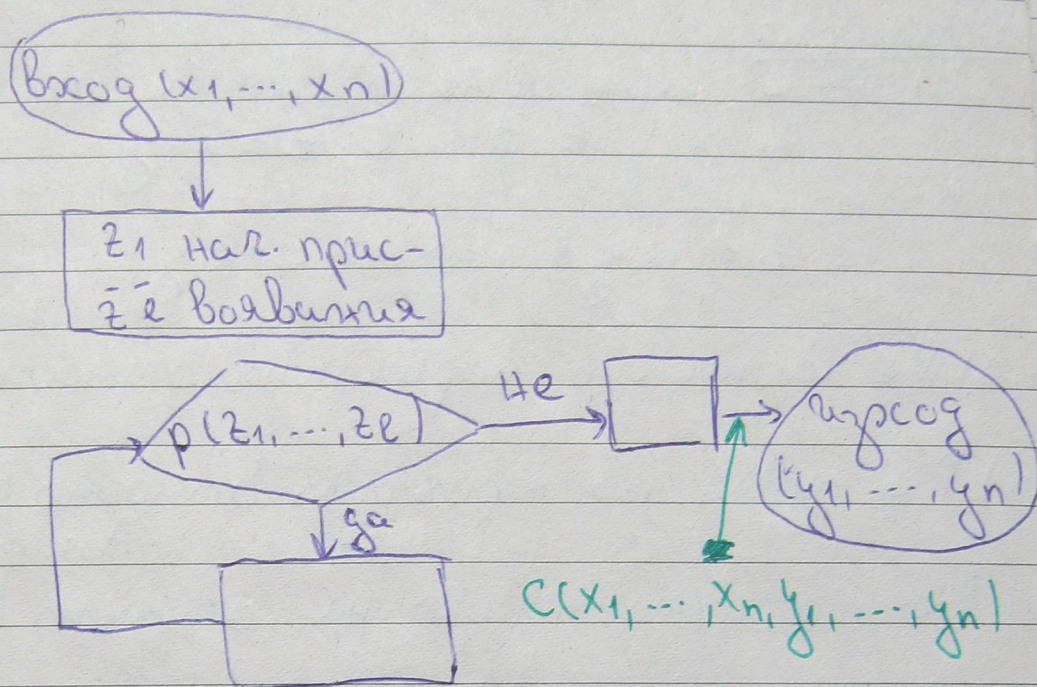 вход (x1, ..., xn)
z1 нач. прис-
z̄ ē воявания
p(z1, ..., ze)
не
да
изход
(y1, ..., yn)
C(x1, ..., xn, y1, ..., yn)